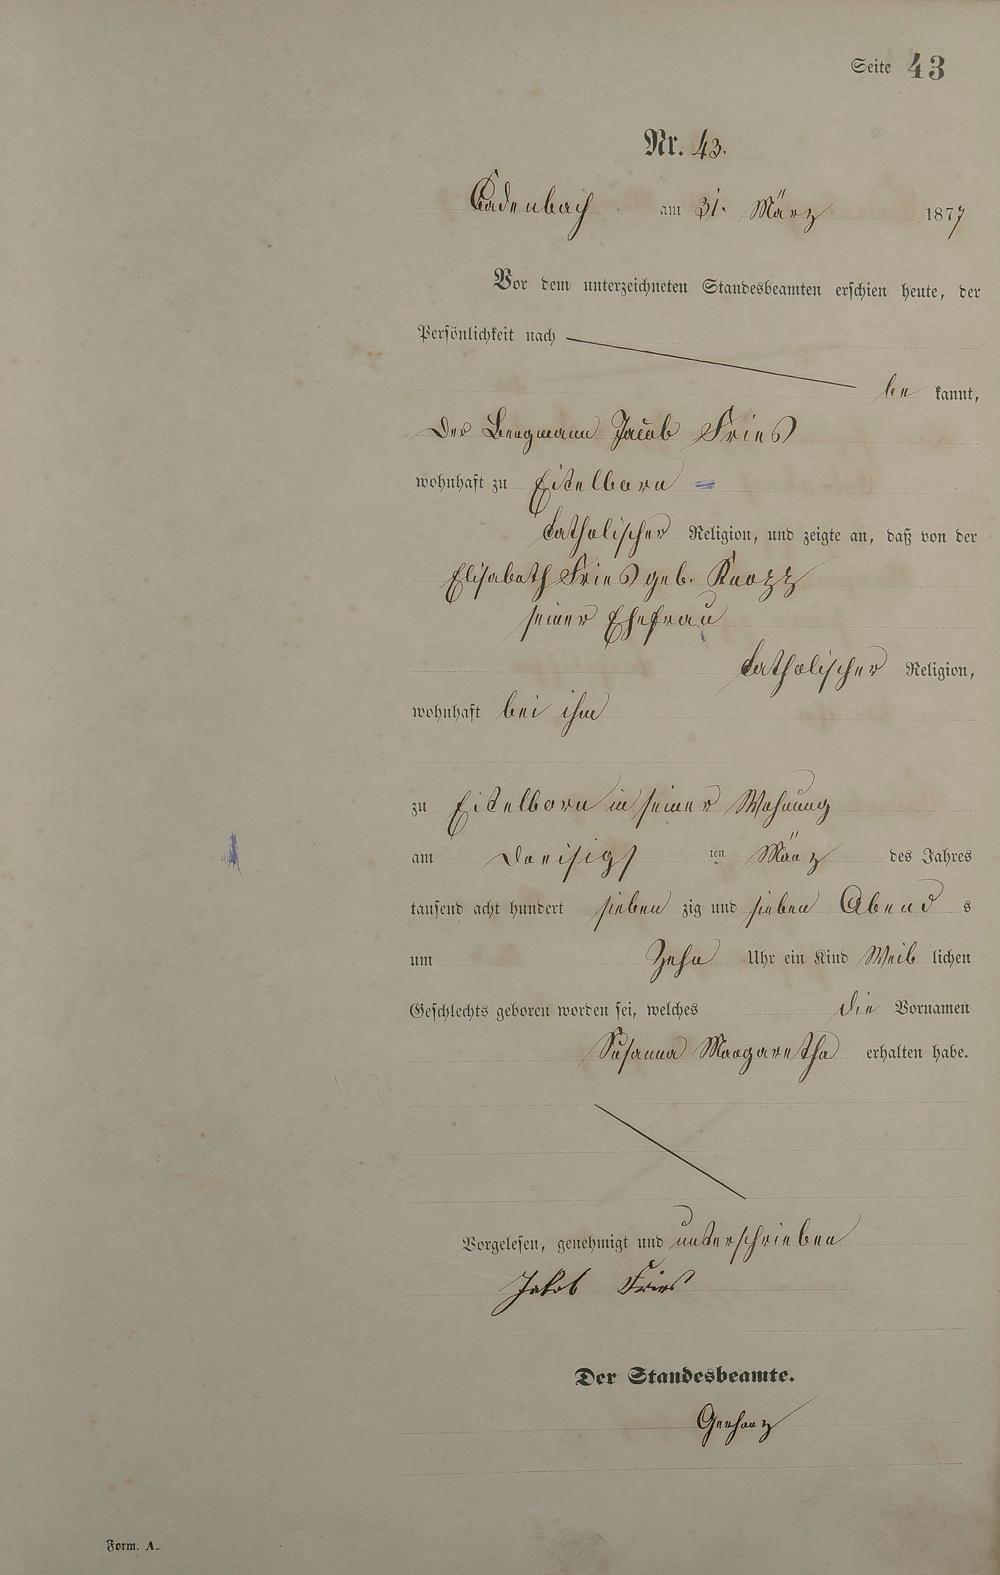 Seite 43
Nr. 43.
Cadenbach am 31. März 1877
Vor dem unterzeichneten Standesbeamten erschien heute, der
Persönlichkeit nach
be kannt,
Der Bergmann Jacob Fries
wohnhaft zu Eitelborn
katholischer Religion, und zeigte an, daß von der
Elisabeth Fries geb. Knopp
seiner Ehefrau
katholischer Religion,
wohnhaft bei ihm
zu Eitelborn in seiner Wohnung
am Dreisigs ten März des Jahres
tausend acht hundert sieben zig und sieben Abend s
um Zehn Uhr ein Kind Weib lichen
Geschlechts geboren worden sei, welches die Vornamen
Susanna Margaretha erhalten habe.
Vorgelesen, genehmigt und unterschrieben
Jakob Fries
Der Standesbeamte.
Gerharz
Form. A.